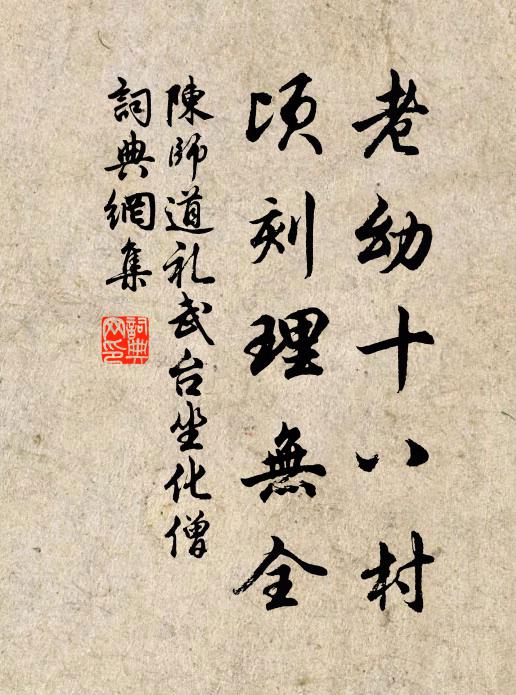 老幼十八村
頃刻理無全
陳師道礼武台坐化僧
詞典網集
詞典網印